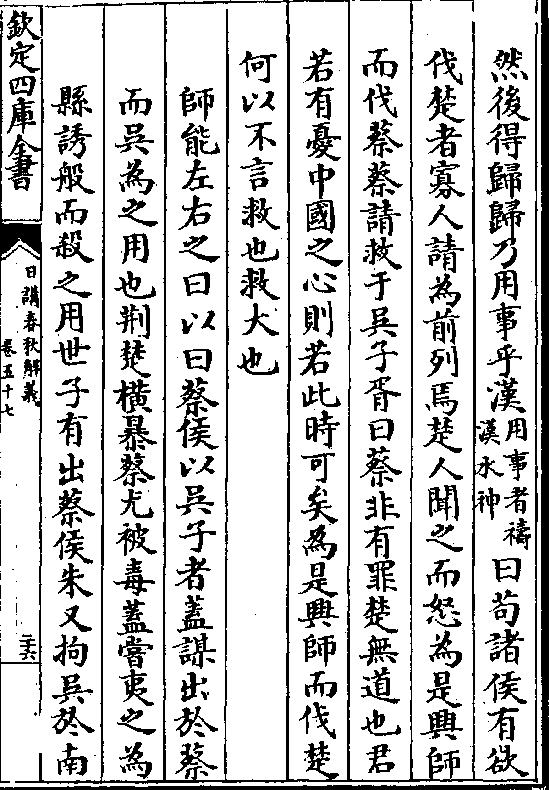 然後得歸歸乃用事乎漢用事者禱漢水神曰苟諸侯有欲
伐楚者寡人請為前列焉楚人聞之而怒為是興師
而伐蔡蔡請救于吳子胥曰蔡非有罪楚無道也君
若有憂中國之心則若此時可矣為是興師而伐楚
何以不言救也救大也
師能左右之曰以曰蔡侯以吳子者蓋謀出於蔡
而吳為之用也荆楚橫暴蔡尤被毒蓋嘗夷之為
縣誘般而殺之用世子有出蔡侯朱又拘吳於南
欽定四庫全書
日講春秋解義
卷五十七
二六